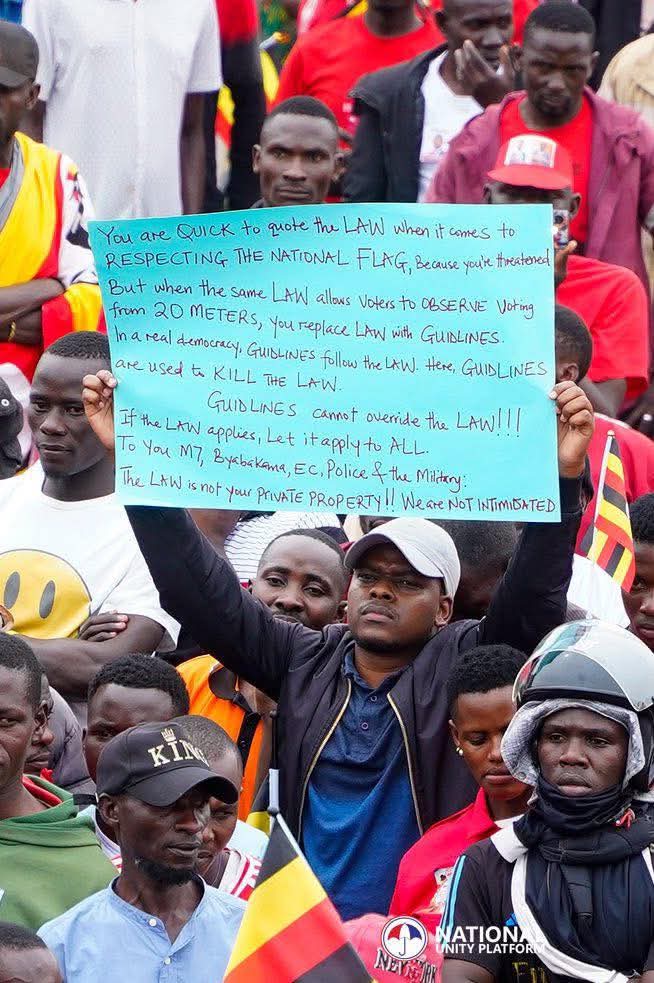 You are QUICK to quote the LAW when it comes to
RESPECTING THE NATIONAL FLAG, Because you're threatened
But when the same LAW allows Voters to OBSERVE Voting
from 20 METERS, you replace LAW with GUIDLINES.
In a real democracy, GUIDLINES follow the LAW. Here, GUIDLINES
are used to KILL THE LAW.
GUIDLINES cannot override the LAW!!!
If the LAW applies, Let it apply to ALL.
To You M7, Byabakama, EC, Police & the Military:
The LAW is not your PRIVATE PROPERTY!! We are NOT INTIMIDATED
KING
NATIONAL
UNITY PLATFORM
NEW YORK